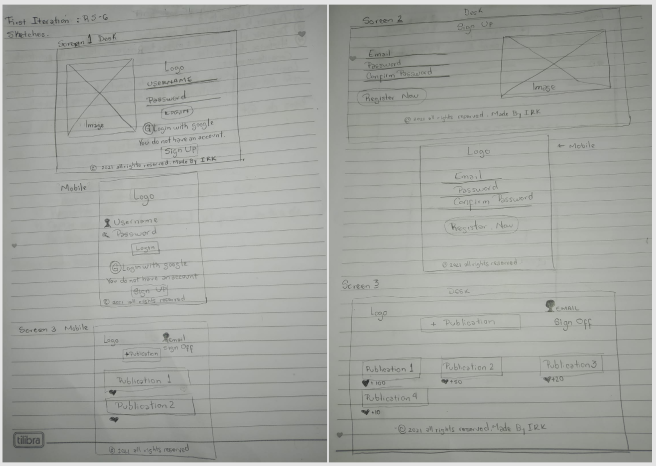 First Iteration : RS-6
Sketches.
Screen 1 Desk
Logo
USERNAME
Password
Image
G Login with google
You do not have an account.
Sign Up
© 2021 all rights reserved. Made By IRK
Mobile
Logo
Username
Password
Login
G Login with google
You do not have an account
Sign Up
© 2021 all rights reserved
Screen 3 Mobile
Logo
Email
Sign Off
+Publication
Publication 1
Publication 2
© 2021 all rights reserved
tilibra
Screen 2
Desk
Sign Up
Email
Password
Confirm Password
Image
Register Now
© 2021 all rights reserved. Made By IRK
← Mobile
Logo
Email
Password
Confirm Password
Register Now
© 2021 all rights reserved
Screen 3
Desk
Logo
EMAIL
+ Publication
Sign Off
Publication 1
Publication 2
Publication 3
+100
+50
+20
Publication 4
+10
© 2021 all rights reserved Made By IRK